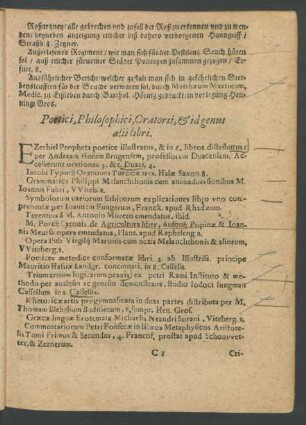 Roßartzney/ alle gebrechen vnd zufell der Roß zu erkennen vnd zu wenden/
beyneben anzeigung etlicher biß dahero verborgenen Handgriff/
Straßb. 8. Zetzner.
Außerlesenes Regiment/ wie man sich für der Pestilentz Seuch hüten
sol/ auß etlicher fürnemer Stätte Policeyen zusammen gezogen/ Erfurt,
8.
Außführlicher Bericht/ welcher gestalt man sich in gefehrlichen Sterbensleufften
für der Seuche verwaren sol, durch Matthæum
Medic. zu Eißleben durch Barthel. Hörnig gedruckt: in vorlegung Henningi
Gros.
Poetici, Philosophici, Oratorii, & id genus
alii libri.
EZechiel Propheta poetice illustratus, & in libros distributus
per Andream Hoium Brugensem, professorem Duacensem, Accesserunt
orationes 3. &c. Duaci. 4.
Iacobi Typotii Orationes Turcicæ tres. Halæ Saxon. 8.
Grammatices Philippi Melanchthonis cum animaduersionibus M.
Ioannis Fabri, VViteb. 8.
Symbolorum variorum Ethicorum explicationes libro vno comprehensæ
per Ioannem Fungerum, Franck. apud Rhid. eum.
Terentius à M. Antonio Mureto emendatus, ibid.
M. Porcii Catonis de Agricultura liber, Ausonii Popmæ & Ioannis
Meursii opera emendatus, Plant. apud Raphelengi. 8.
Opera Pub. Virgilij Maronis cum notis Melanchthonis & aliorum,
VViteberg. 8.
Poetices methodice conformatæ libri 4. ab Illustriss. principe
Mauritio Hassiæ landgr. concinnati, in 8. Cassellis.
Triumuirium linguarum praxis ex petri Rami Instituto & methodo
per analysin ac genesin demonstrans, studio Iodoci Iungman
Cassellani in 8. Casselis.
Rhetoricæ artis progymnasmata in duas partes distributa per M,
Thomam 8. sumpt. Hen. Gros.
Græcæ linguæ Erotemata Michaelis Neandri Sorani, Viteberg. 8.
Commentariorum Petri Fonsecæ in libros Metaphysicos Aristotelis
Tomi Primus & Secundus, 4. Francof, prostat apud Schonvvetter,
& Zetnerum.
C 2 Cri-